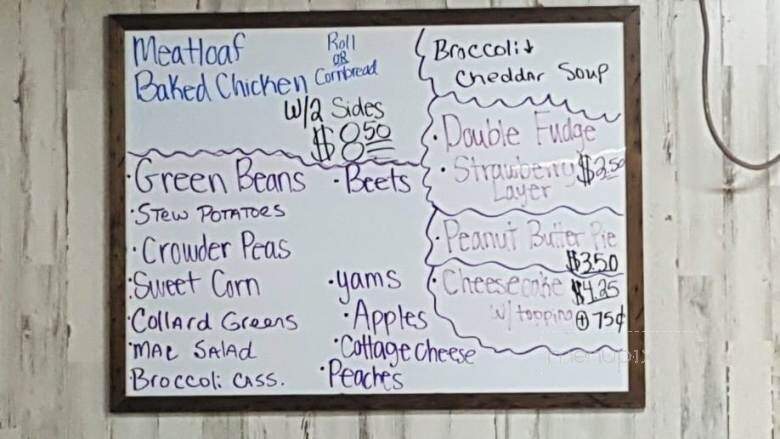 Meatloaf
Baked Chicken
Roll
OR
Cornbread
W/2 Sides
$8.50
• Green Beans
• Stew Potatoes
• Crowder Peas
• Sweet Corn
• Collard Greens
• Mac Salad
• Broccoli Cass.
• Beets
• yams
• Apples
• Cottage Cheese
• Peaches
Broccoli +
Cheddar Soup
• Double Fudge
• Strawberry $3.50
Layer
• Peanut Butter Pie
$3.50
• Cheesecake $4.25
w/ topping + 75¢
menupix